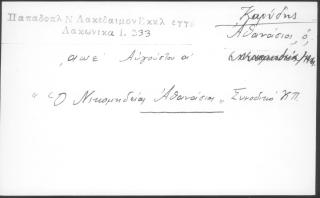 Παπαδοπλ Ν Λακεδαιμον Εκκλ εγγρ
Λακωνικα 1. 333
Καρύδης
Ἀθανάσιος, ὁ,
αωε΄ Αὐγούστου α΄
"Ὁ Νικομηδείας Ἀθανάσιος" Συνοδικὸ